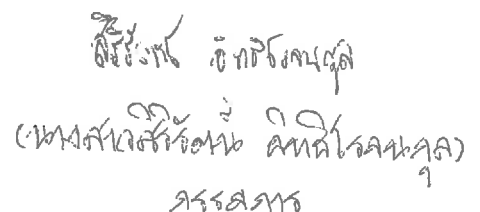 สิริรัตน์ อิทธิโรจนกุล
(นางสาวสิริรัตน์ อิทธิโรจนกุล)
กรรมการ